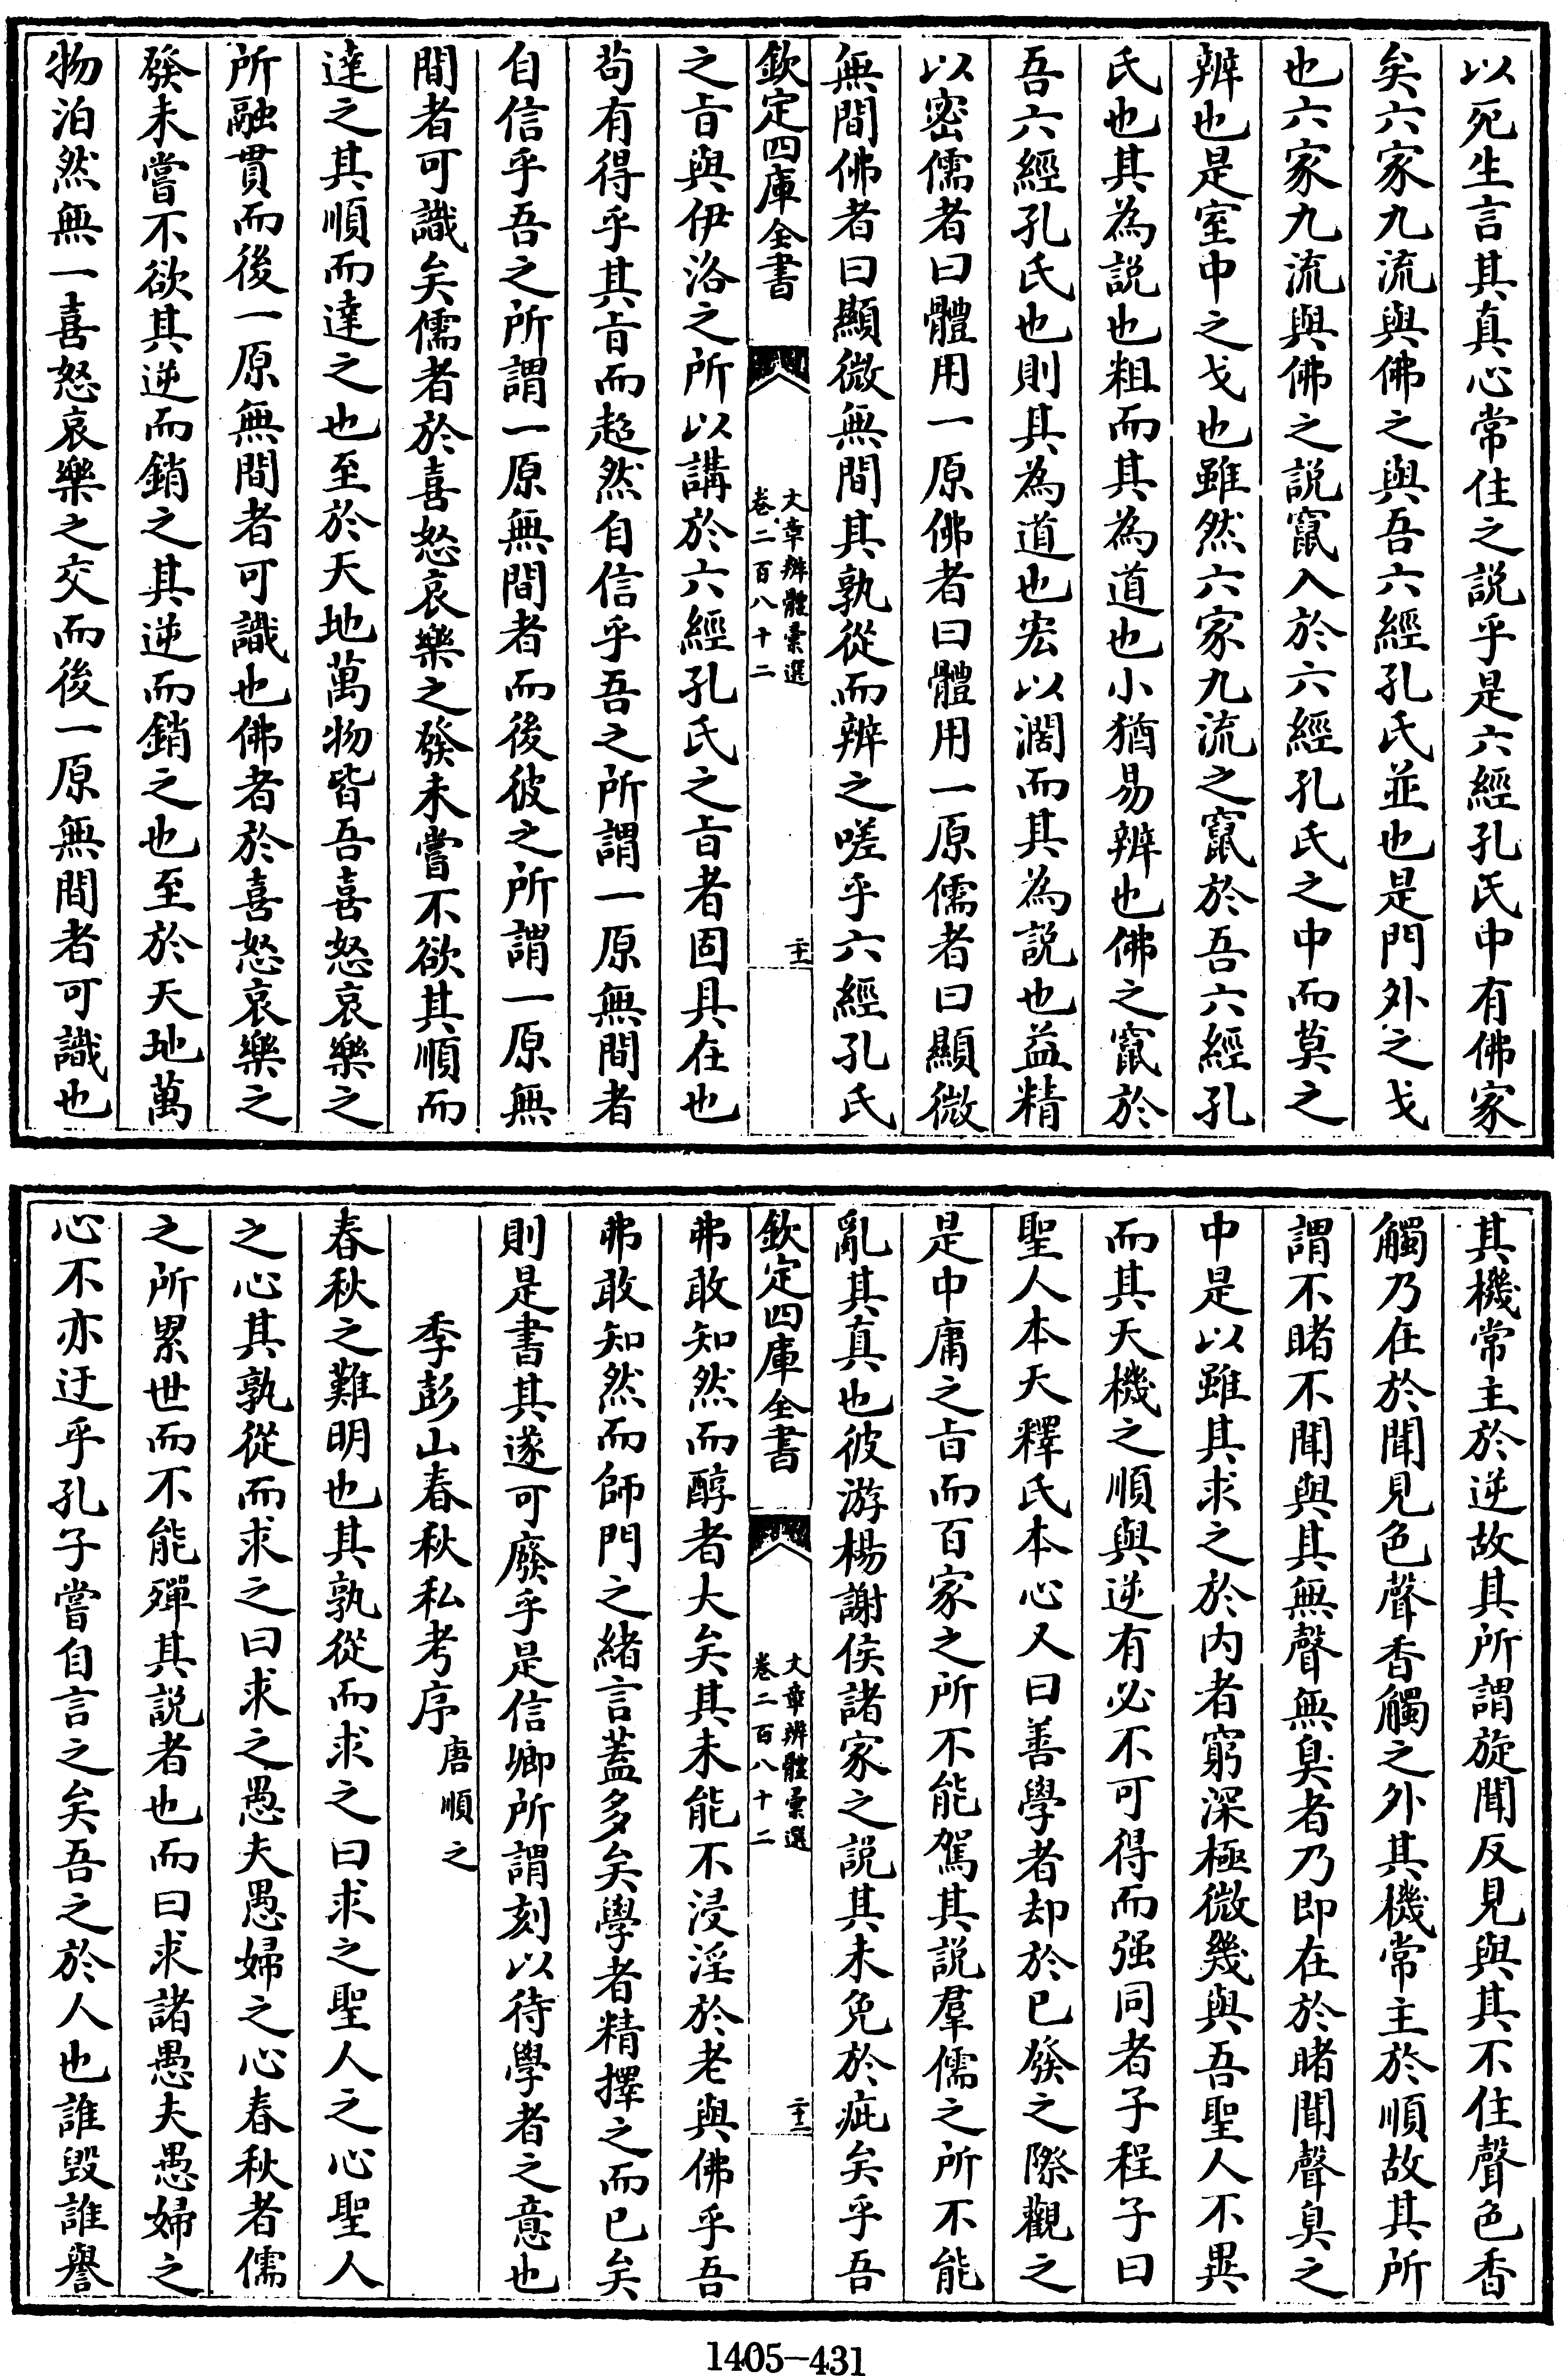 以死生言其真心常住之説乎是六經孔氏中有佛家
矣六家九流與佛之與吾六經孔氏並也是門外之戈
也六家九流與佛之説竄入於六經孔氏之中而莫之
辨也是室中之戈也雖然六家九流之竄於吾六經孔
氏也其為説也粗而其為道也小猶易辨也佛之竄於
吾六經孔氏也則其為道也宏以濶而其為説也益精
以密儒者曰體用一原佛者曰體用一原儒者曰顯微
無間佛者曰顯微無間其孰從而辨之嗟乎六經孔氏
欽定四庫全書
文章辨體彙選
卷二百八十二
二十一
之旨與伊洛之所以講於六經孔氏之旨者固具在也
茍有得乎其旨而超然自信乎吾之所謂一原無間者
自信乎吾之所謂一原無間者而後彼之所謂一原無
間者可識矣儒者於喜怒哀樂之發未嘗不欲其順而
達之其順而達之也至於天地萬物皆吾喜怒哀樂之
所融貫而後一原無間者可識也佛者於喜怒哀樂之
發未嘗不欲其逆而銷之其逆而銷之也至於天地萬
物泊然無一喜怒哀樂之交而後一原無間者可識也
其機常主於逆故其所謂旋聞反見與其不住聲色香
觸乃在於聞見色聲香觸之外其機常主於順故其所
謂不睹不聞與其無聲無臭者乃即在於睹聞聲臭之
中是以雖其求之於内者窮深極微幾與吾聖人不異
而其天機之順與逆有必不可得而强同者子程子曰
聖人本天釋氏本心又曰善學者却於已發之際觀之
是中庸之旨而百家之所不能駕其説羣儒之所不能
亂其真也彼游楊謝侯諸家之説其未免於疵矣乎吾
欽定四庫全書
文章辨體彙選
卷二百八十二
二十二
弗敢知然而醇者大矣其未能不浸淫於老與佛乎吾
弗敢知然而師門之緒言蓋多矣學者精擇之而已矣
則是書其遂可廢乎是信卿所謂刻以待學者之意也
季彭山春秋私考序 唐順之
春秋之難明也其孰從而求之曰求之聖人之心聖人
之心其孰從而求之曰求之愚夫愚婦之心春秋者儒
之所累世而不能殫其説者也而曰求諸愚夫愚婦之
心不亦迂乎孔子嘗自言之矣吾之於人也誰毁誰譽
1405-431